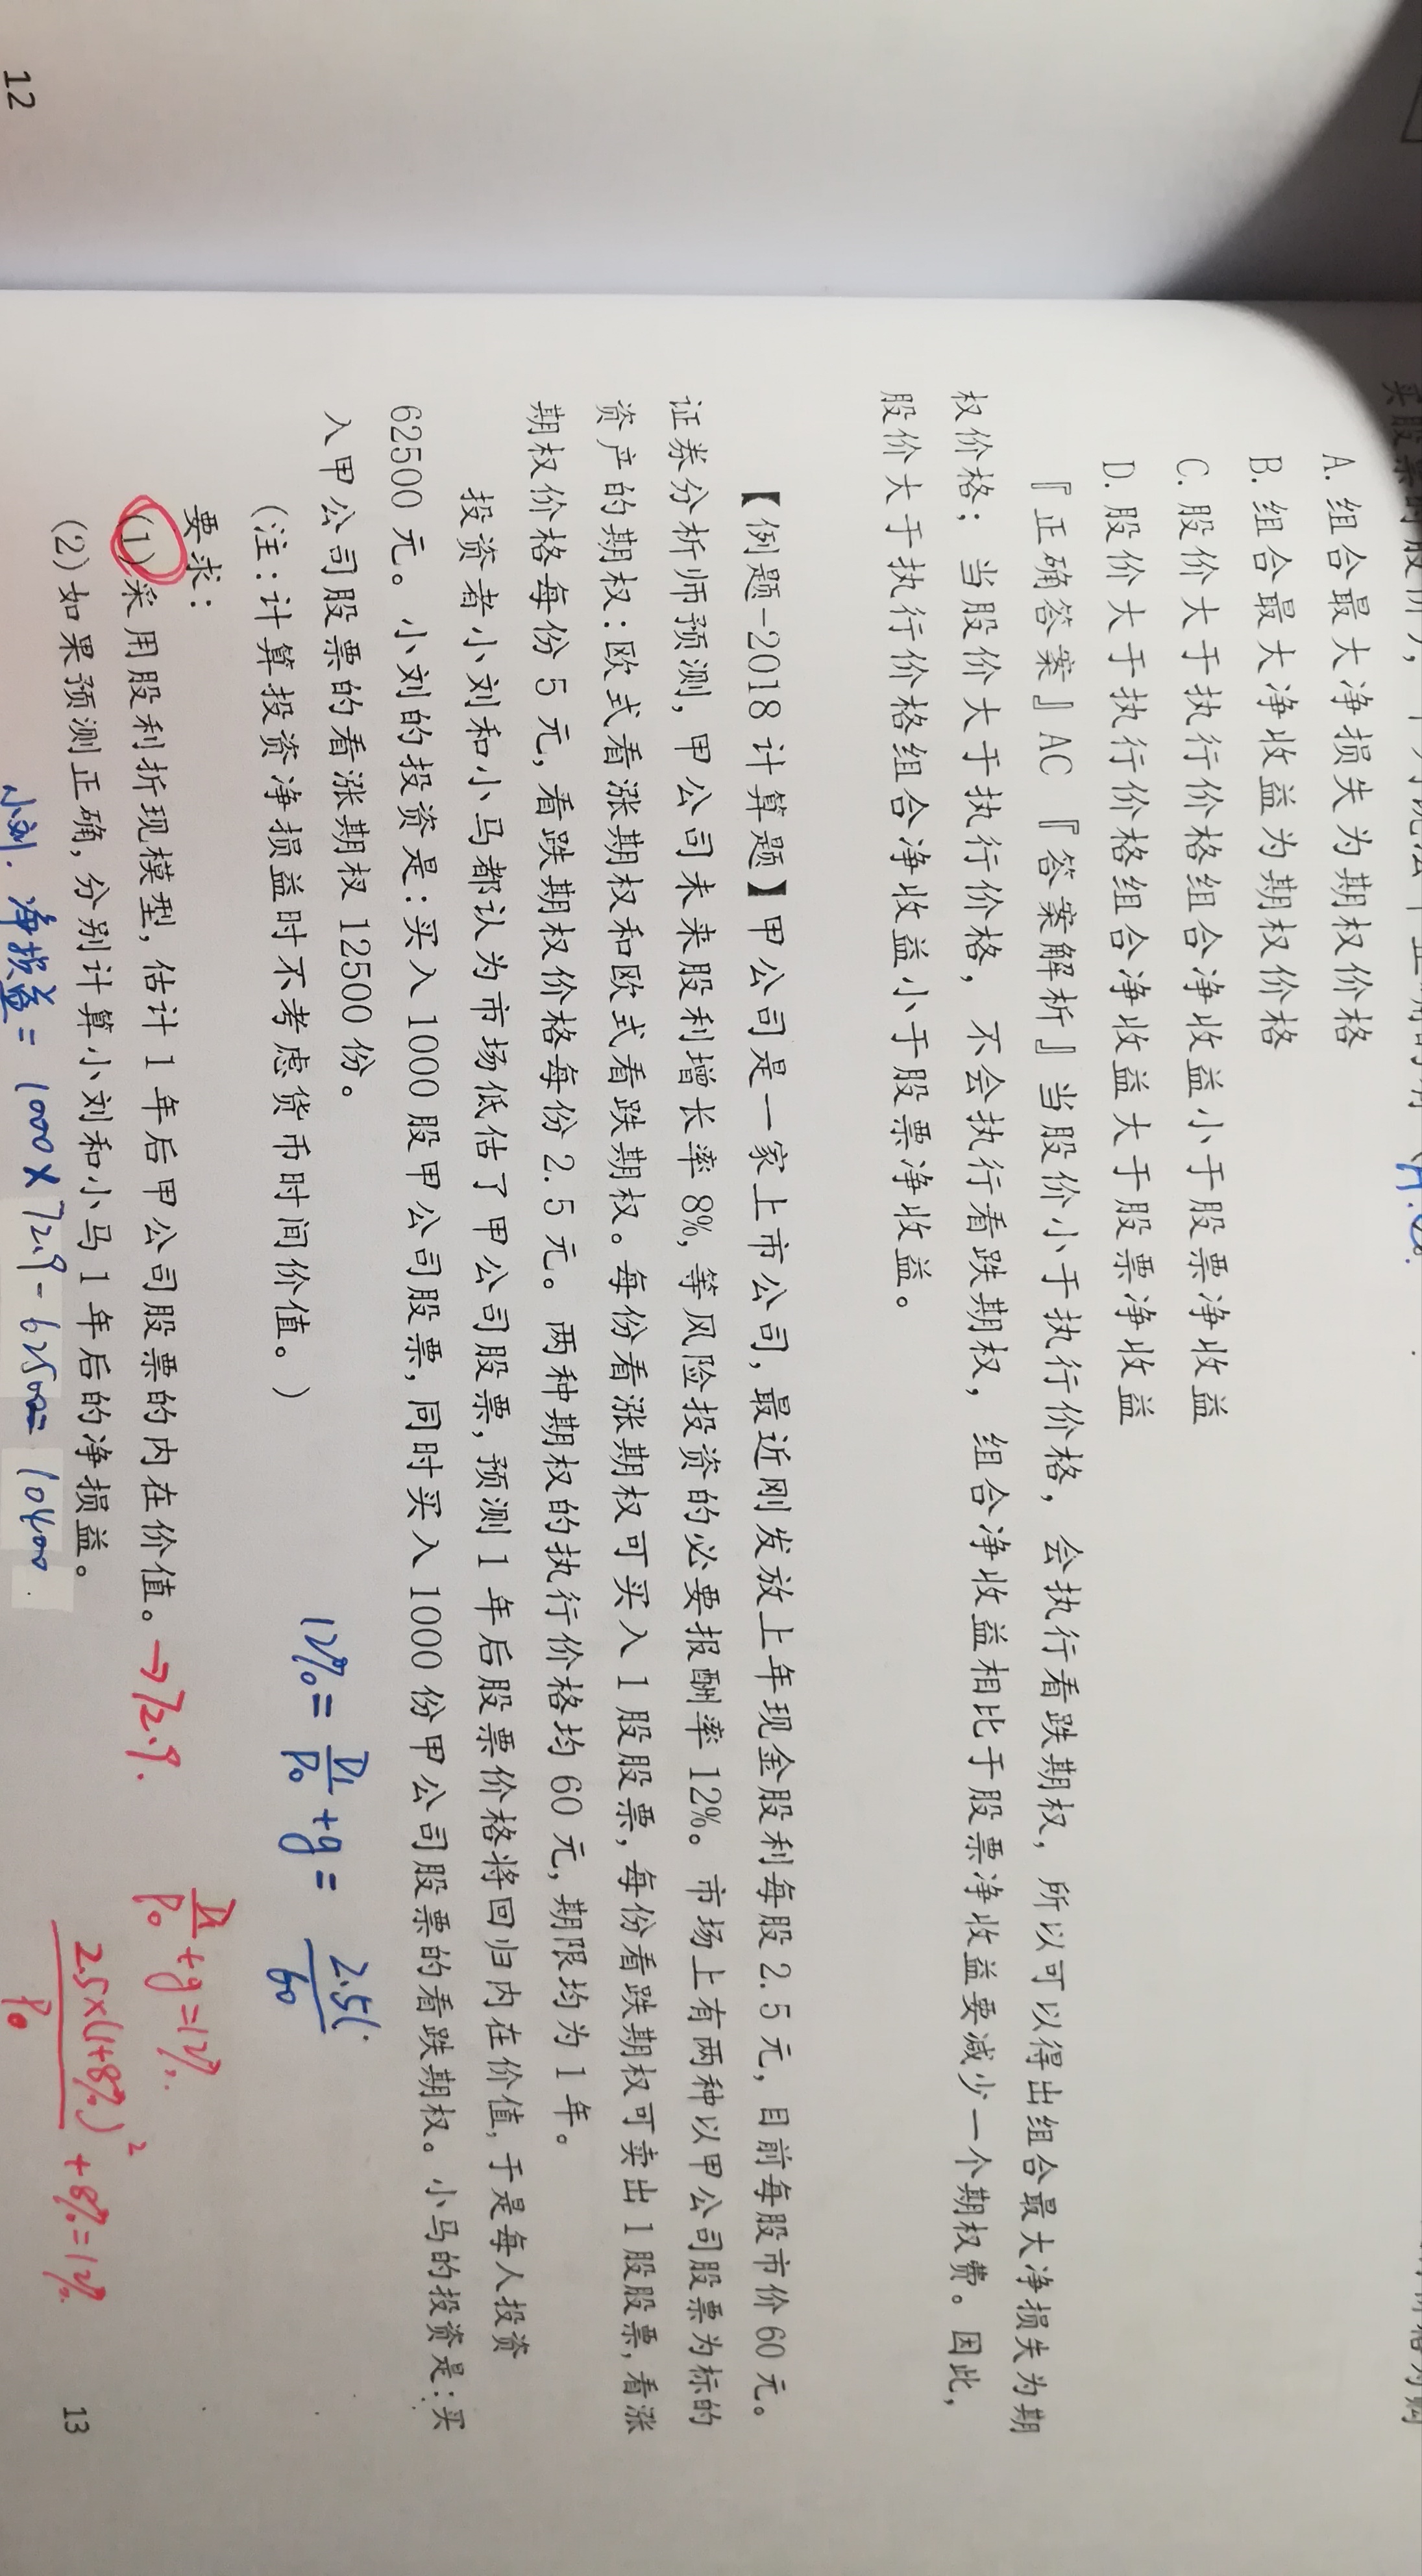 12
A. 组合最大净损失为期权价格
B. 组合最大净收益为期权价格
C. 股价大于执行价格组合净收益小于股票净收益
D. 股价大于执行价格组合净收益大于股票净收益
『正确答案』AC『答案解析』当股价小于执行价格，会执行看跌期权，所以可以得出组合最大净损失为期
权价格；当股价大于执行价格，不会执行看跌期权，组合净收益相比于股票净收益要减少一个期权费。因此，
股价大于执行价格组合净收益小于股票净收益。
【例题-2018 计算题】甲公司是一家上市公司，最近刚发放上年现金股利每股 2.5 元，目前每股市价 60 元。
证券分析师预测，甲公司未来股利增长率 8%，等风险投资的必要报酬率 12%。市场上有两种以甲公司股票为标的
资产的期权：欧式看涨期权和欧式看跌期权。每份看涨期权可买入 1 股股票，每份看跌期权可卖出 1 股股票，看涨
期权价格每份 5 元，看跌期权价格每份 2.5 元。两种期权的执行价格均 60 元，期限均为 1 年。
投资者小刘和小马都认为市场低估了甲公司股票，预测 1 年后股票价格将回归内在价值，于是每人投资
62500 元。小刘的投资是：买入 1000 股甲公司股票，同时买入 1000 份甲公司股票的看跌期权。小马的投资是：买
入甲公司股票的看涨期权 12500 份。
(注：计算投资净损益时不考虑货币时间价值。)
12%= D1/P0 +g= 2.5(/60
要求：
(1)采用股利折现模型，估计 1 年后甲公司股票的内在价值。→72.9.
D1/P0 +g=12%.
(2)如果预测正确，分别计算小刘和小马 1 年后的净损益。
2.5×(1+8%)²/P0 +8%=12%
小刘. 净损益= 1000×72.9-62500= 10400.
13